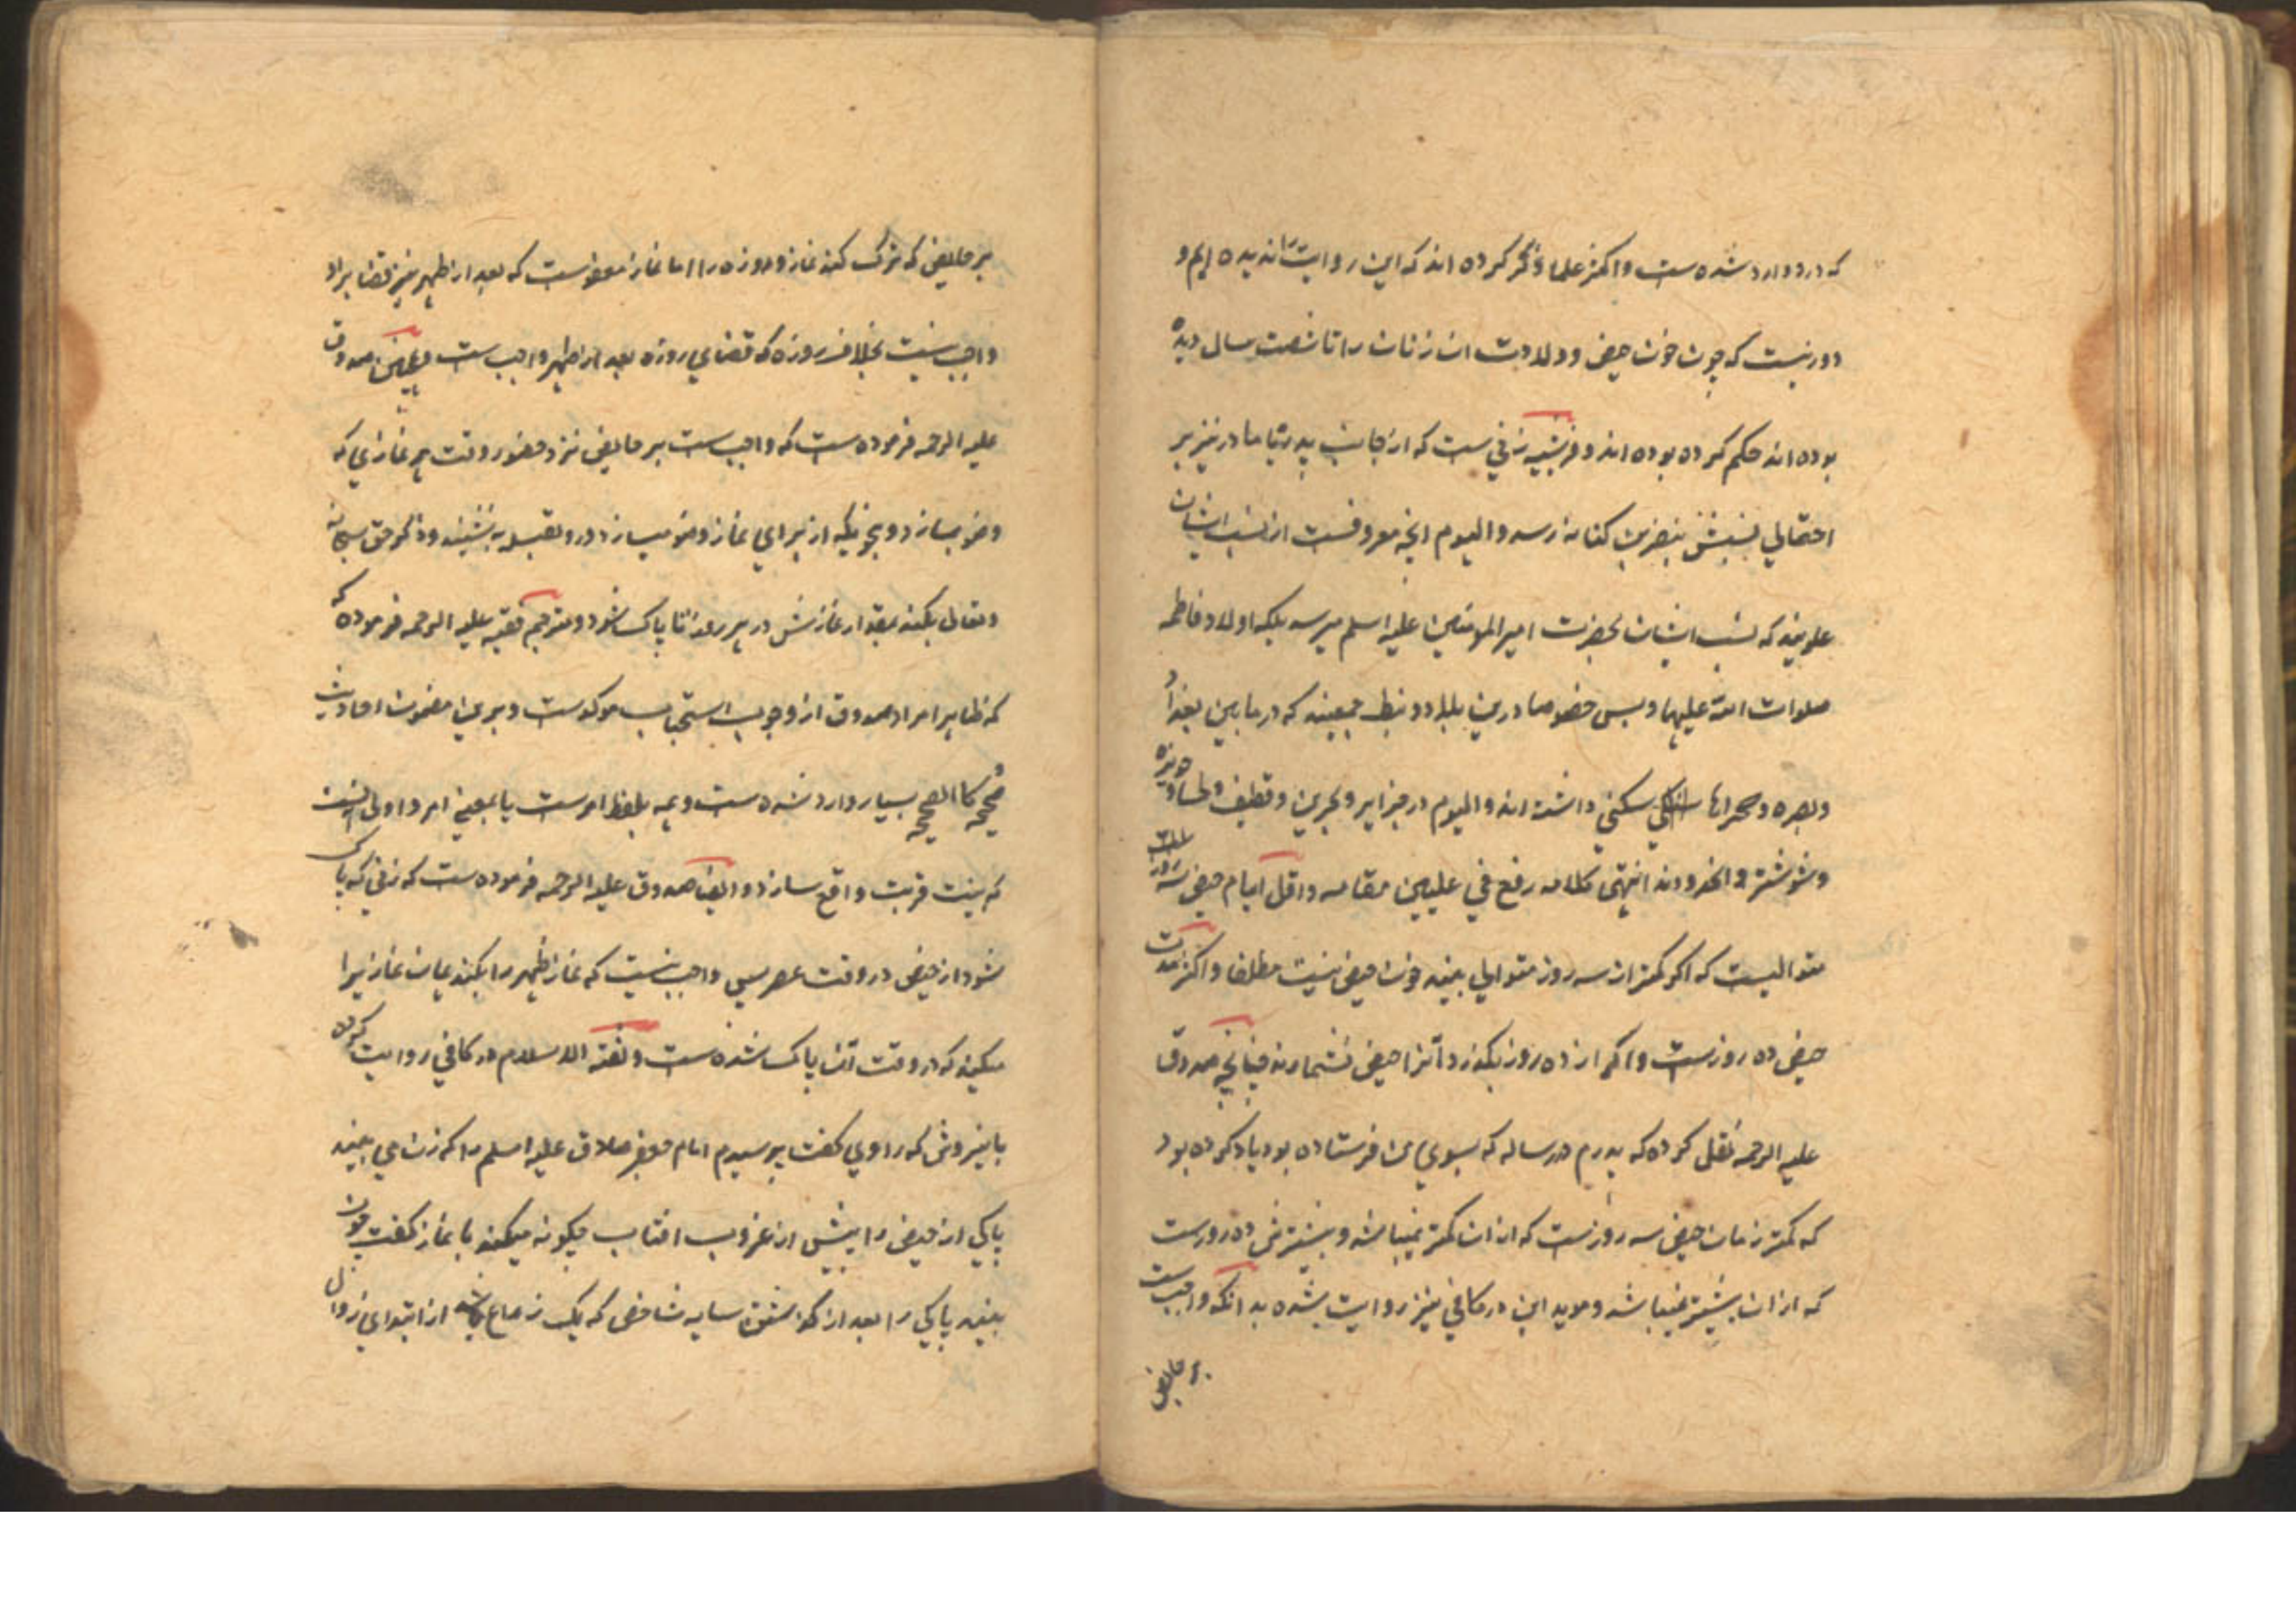 که درو وارد شده است و اکثر علما ذکر کرده اند که این روایت را ندیده ایم و
دور نیست که چون خون حیض و ولادت ان زنان را تا شصت سال دیده
بوده اند حکم کرده بوده اند و قرشیه زنی ست که از جانب پدر یا مادر نیز بر
احتمالی نسبش بنضر بن کنانه رسد و الیوم انچه معروفست از نسب ایشان
علویند که نسب ایشان بحضرت امیر المومنین علیه السلم میرسد بلکه اولاد فاطمه
صلوات الله علیها و بس خصوصا درین بلاد و نبط جمعیند که در مابین بغداد
و بصره و صحراها سکنی داشته اند و الیوم در جزایر و بحرین و قطیف و لحسا و حویزه
و شوشتر و انحدودند انتهی کلامه رفع فی علیین مقامه و اقل ایام حیض سه روز
متوالیست که اکر کمتر از سه روز متوالی بیند خون حیض نیست مطلقا و اکثر مدت
حیض ده روزست و اکر از ده روز بکذرد آنرا حیض نشمارند چنانچه صدوق
علیه الرحمه نقل کرده که پدرم در رساله که بسوی من فرستاده بود یاد کرده بود
که کمتر زمان حیض سه روزست که ازان کمتر نمیباشد و بیشترش ده روزست
که ازان بیشتر نمیباشد و موید این در کافی نیز روایت شده بدانکه واجب است
بر حایض
بر حایض که ترک کند نماز و روزه را اما نماز معفوست که بعد از طهر نیز قضا برو
واجب نیست بخلاف روزه که قضای روزه بعد از طهر واجب ست و صدوق
علیه الرحمه فرموده است که واجب ست بر حایض نزد حضور وقت هر نمازی که
وضو بسازد و بنحویکه از برای نماز وضو میسازد و رو بقبله بنشیند و ذکر حق سبحانه
و تعالی بکند بمقدار نمازش در هر روز تا پاک شود و مترجم فقیه علیه الرحمه فرموده که
که ظاهرا مراد صدوق از وجوب استحباب موکدست و برین مضمون احادیث
صحیحه و کالصحیحه بسیار وارد شده ست و همه بلفظ امرست یا بمعنی امر و اولی انست
که بنیت قربت واقع سازد و ایضا صدوق علیه الرحمه فرموده ست که زنی که پاک
شود از حیض در وقت عصر پس واجب نیست که نماز ظهر را بکند همان نماز را
میکند که در وقت آن پاک شده ست و ثقة الاسلام در کافی روایت کرده
باینروش که راوی کفت پرسیدم امام جعفر صادق علیه السلم را که زن می بیند
پاکی از حیض را پیش از غروب افتاب چکونه میکند با نماز کفت چون
بیند پاکی را بعد از کذشتن سایه شاخص که یک ذراع باشد از ابتدای زوال